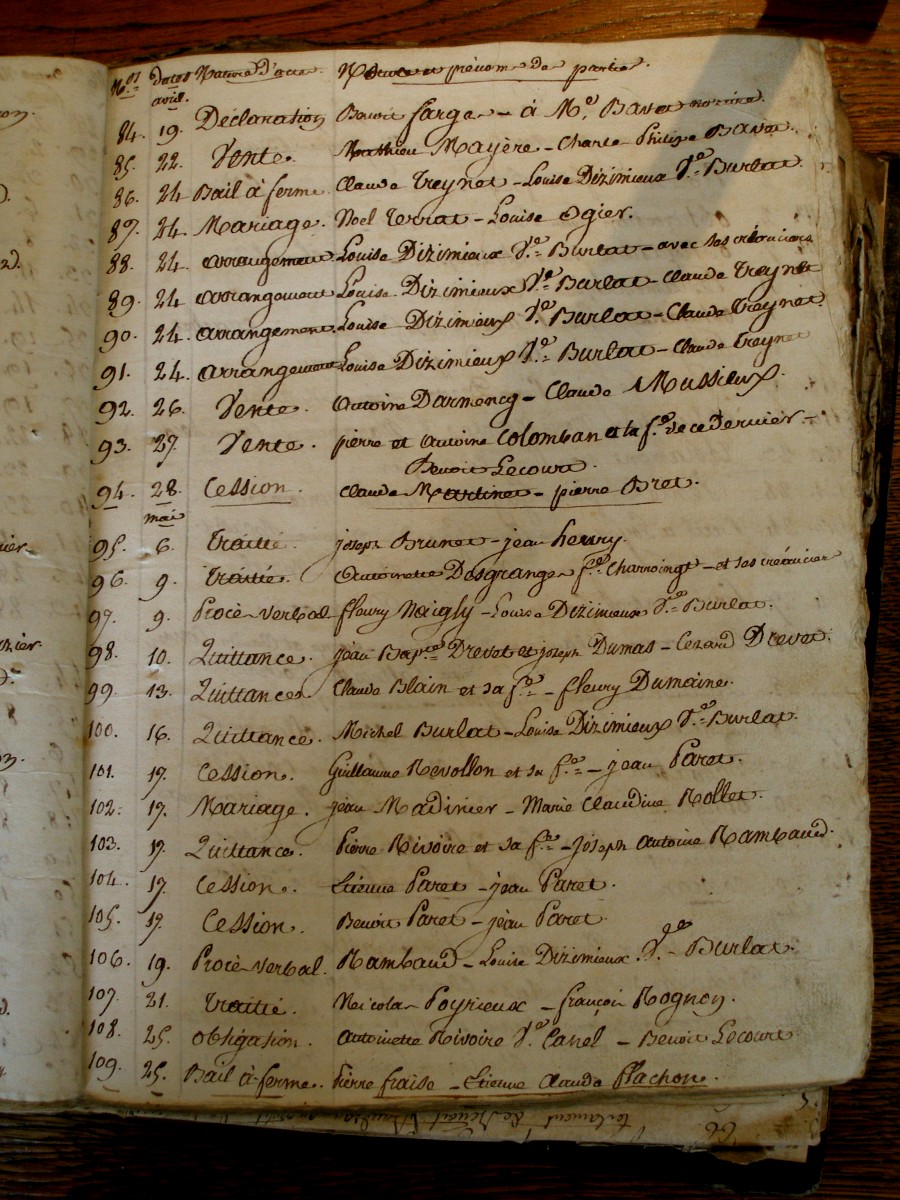 N.os dates Nature d'acte. Noms et prénoms des parties.
avril.
84. 19. Déclaration Benoit farge - à M.e Bavot notaire.
85. 22. Vente. Mathieu Mayère - Charle Philipe Bavot.
86. 24 Bail à ferme. Claude Treynet - Louise Dizimieux V.e Burlat.
87. 24. Mariage. Noel Terrat - Louise Ogier.
88. 24. arrangement Louise Dizimieux V.e Burlat - avec ses créanciers
89. 24 arrangement Louise Dizimieux V.e Burlat - Claude Treynet
90. 24. arrangement. Louise Dizimieux V.e Burlat - Claude Treynet.
91. 24. arrangement Louise Dizimieux V.e Burlat - Claude Treynet
92. 26. Vente. Antoine Darmencq - Claude Mussieux.
93. 27. Vente. pierre et Antoine Colomban et la f.e de ce dernier -
Benoit Lecourt.
94. 28. Cession. Claude Martinet - pierre Bret.
mai
95. 6. Traitté. joseph Brunet - jean henry.
96. 9. Traitté. Antoinette Desgranges f.e Charroingt - et ses créancier
97. 9. Procè-verbal fleury Neigly - Louise Dizimieux V.e Burlat.
98. 10. Quittance. jean Bap.te Drevet et joseph Dumas - Cezard Drevet.
99. 13. Quittance Claude Blain et sa f.e - fleury Dumaine.
100. 16. Quittance. Michel Burlat - Louise Dizimieux V.e Burlat.
101. 17. Cession. Guillaume Revollon et sa f.e - jean Paret.
102. 17. Mariage. jean Madinier - Marie Claudine Rollet.
103. 17. Quittance. Pierre Rivoire et sa f.e - joseph Antoine Rambaud.
104. 17. Cession. Etienne Paret - jean Paret.
105. 17. Cession. Benoit Paret - jean Paret.
106. 19. Procè-verbal. Rambaud - Louise Dizimieux V.e Burlat.
107. 21. Traitté. Nicolas Poyrieux - françois Rognon.
108. 25. obligation. Antoinette Rivoire V.e Canel - Benoit Lecourt
109. 25. Bail à ferme. Pierre fraise - Etienne Claude Plachon.